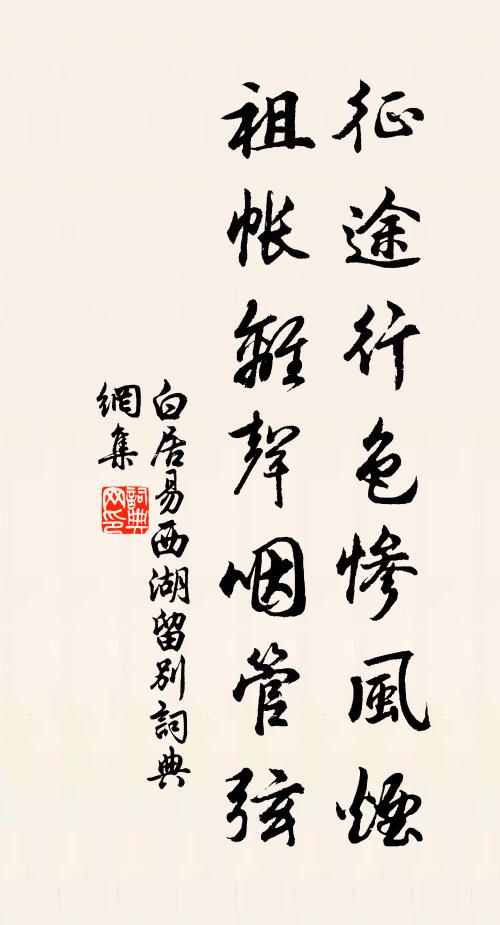 征途行色慘風煙
祖帳離聲咽管弦
白居易西湖留別詞典
網集
詞典
网印